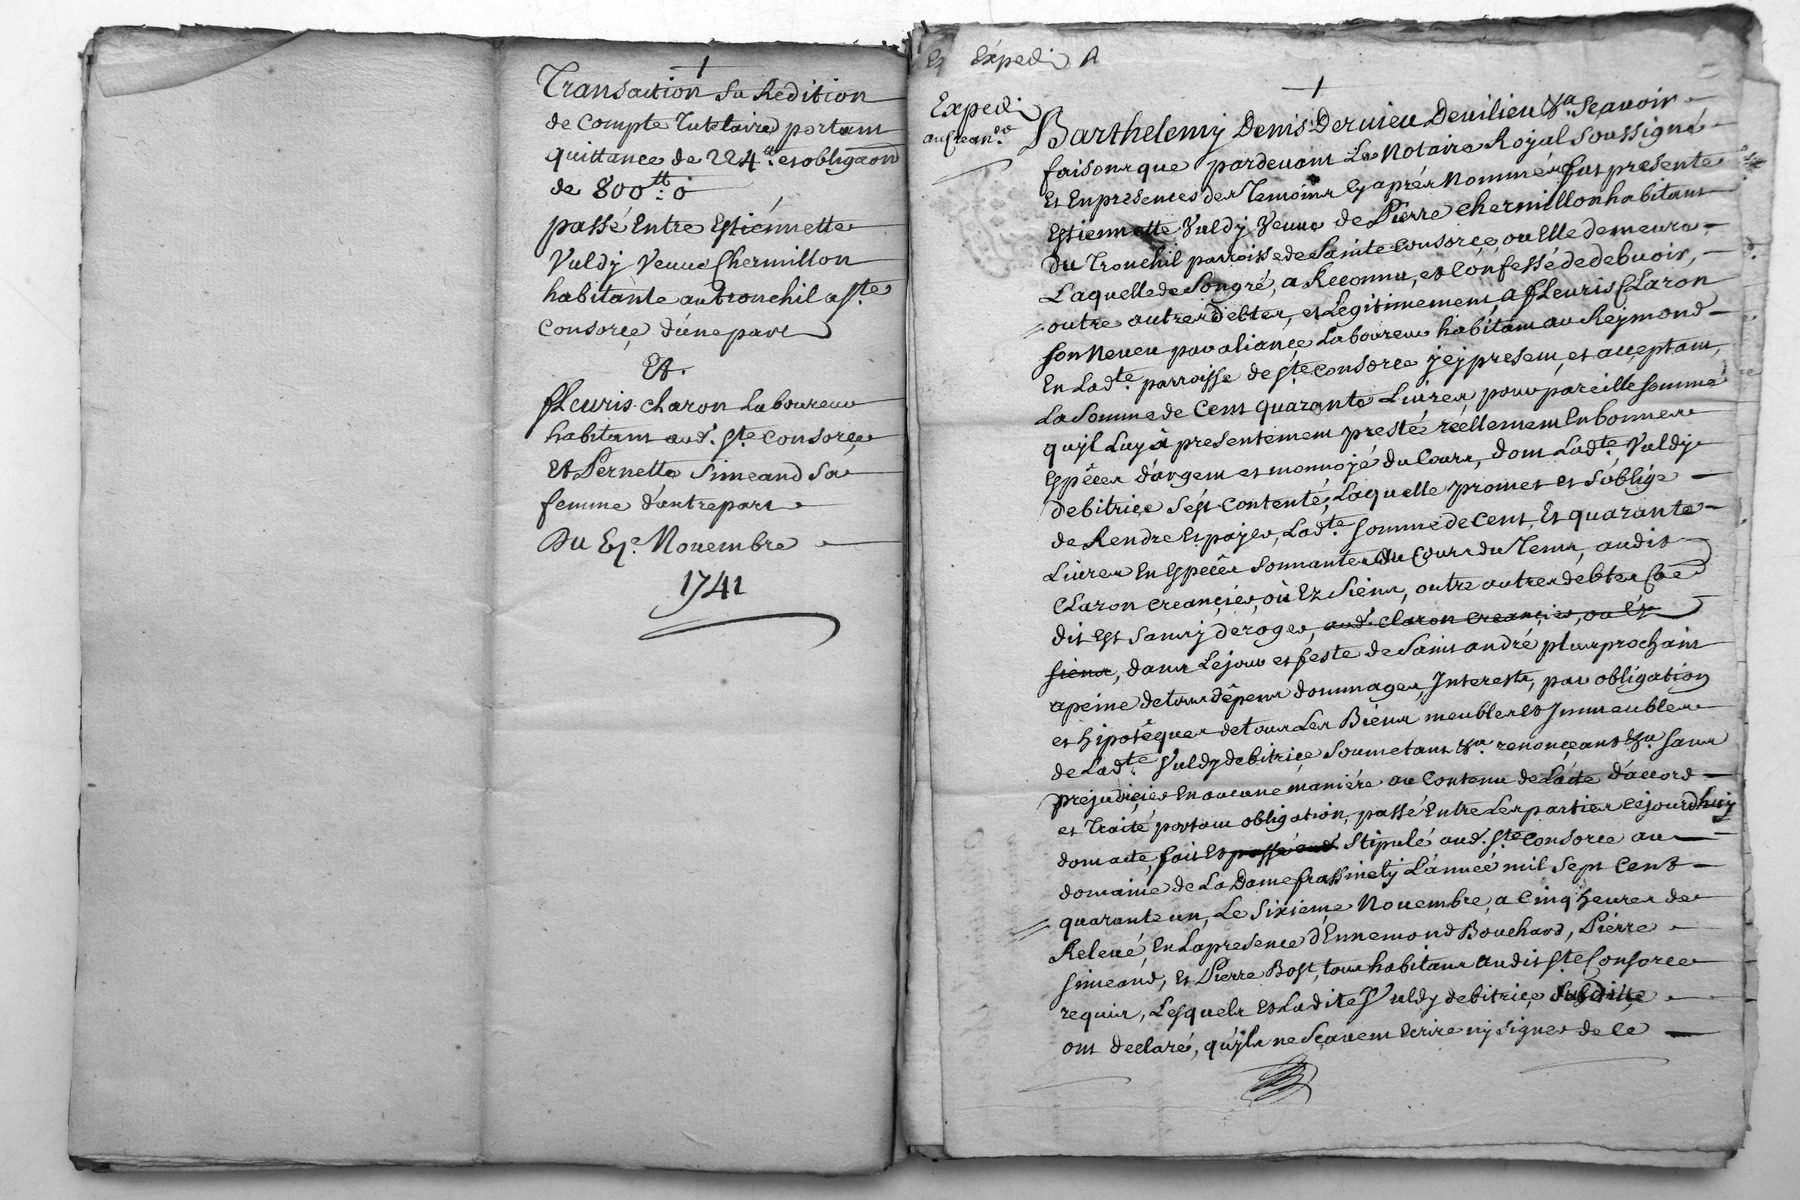 Transaction Su Redition
de Compte Tutelaire portant
quittance de 224ᵗᵗ et obligaon
de 800ᵗᵗ: 0
passé Entre Estiénnette
Vuldy Veuve Chermillon
habitante au tronchil a Ste
Consorçe d'úne part
Et.
fleuris claron Laboureur
habitant aud. Ste Consorçe
Et Pernette Simeand Sa
femme d'autre part
Du 6e. Novembre
1741
Expedié
Expedié
au Crean.er
Barthelemy Denis Dervieu Devilieu &a Sçavoir
faisons que pardevant Le Notaire Royal Soussigné
Et En presences des Temoins Cy aprés Nommés fut presente
Estiennette Vuldy Veuve de Pierre Chermillon habitant
Du Tronchil parroisse de Sainte Consorçe, ou Elle demeure,
Laquelle de Son gré, a Reconnu, et Confessé de debvoir,
outre autres debtes, et Légitimement, a fleuris Claron
Son Neveu par aliançe Laboureur habitant au Reymond
En Ladte. parroisse de Ste Consorce jcy present, et acceptant,
La Somme de Cent quarante Livres, pour pareille Somme
qu'jl Luy à presentement presté réellement En bonnes
Espéces d'argent et monnoyé du Cours, dont Ladte. Vuldy
debitriçe S'est Contentée, Laquelle promet et S'oblige
de Rendre Et payer, Ladte. Somme de Cent, Et quarante
Livres En Espéces Sonnantes du Cours du Tems, audit
Claron Creançier, où Ez Siens, outre autres debtes Coe
dit Est Sans y deroger, aud. Claron Creançier, ou Ez
Siens, dans Le jour et feste de Saint andré plus prochain
a peine de tous dêpens dommages, Interests, par obligation
et hipotêques de tous Les Biéns meubles Et Immeubles
de Ladte. Vuldy debitriçe Soumetant &a. renonçant &a. Sans
préjudiçier En aucune maniére au Contenu de L'acte d'accord
et Traité portant obligation, passé Entre Les parties Cejourdhuy
dont acte, fait Et passé aud. Stipulé aud. Ste Consorce au
domaine de La Dame frassinety L'année mil Sept Cent
quarante un, Le Sixiéme Novembre, a Cinq heures de
Relevé, En La presence d'Ennemond Bouchard, Pierre
Simeand, Et Pierre Bost, tous habitans audit Ste Consorce
requis, Lesquels Et Ladite Vuldy debitriçe
ont declaré, qu'jls ne Sçavent Ecrire ny Signer de Ce